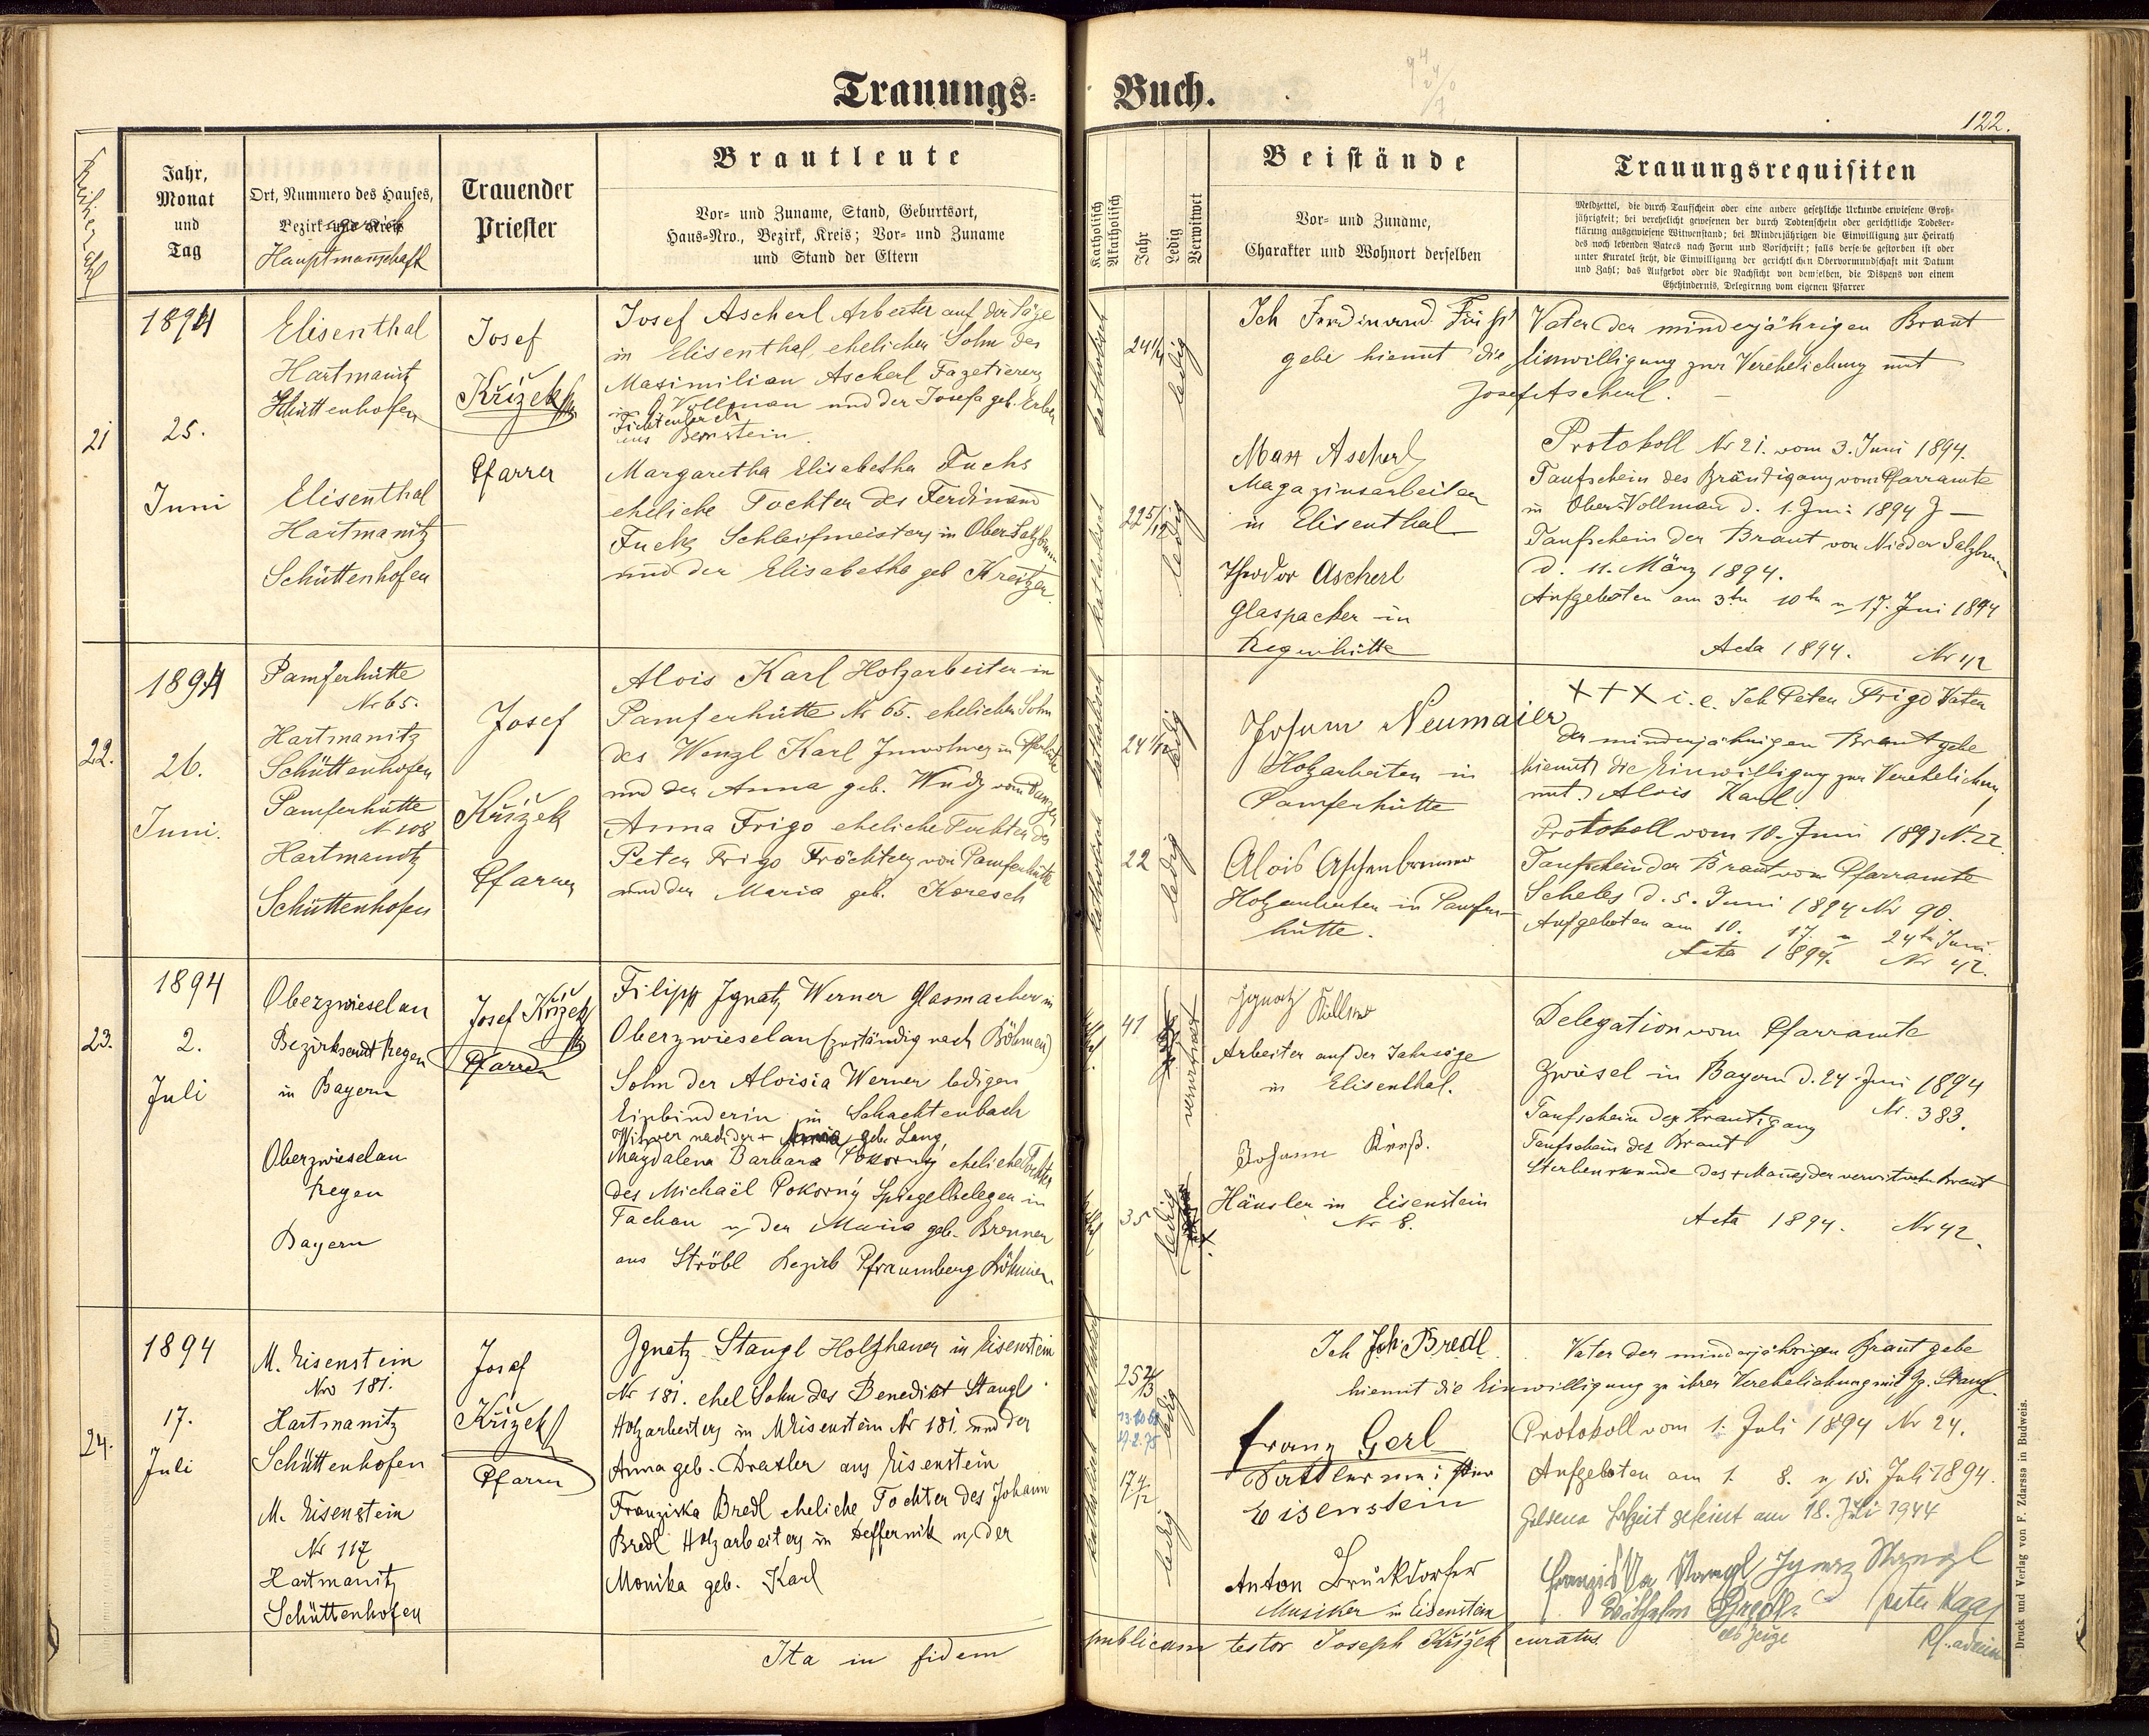 Trauungs-
Buch.
122.
Jahr,
Monat
und
Tag
Ort, Nummero des Hauses,
Bezirk und Kreis
Hauptmannschaft
Trauender
Priester
Brautleute
Vor- und Zuname, Stand, Geburtsort,
Haus-Nro., Bezirk, Kreis; Vor- und Zuname
und Stand der Eltern
Katholisch
Akatholisch
Jahr
Ledig
Verwitwet
Beistände
Vor- und Zuname,
Charakter und Wohnort derselben
Trauungsrequisiten
Meldzettel, die durch Taufschein oder eine andere gesetzliche Urkunde erwiesene Groß-
jährigkeit; bei verehelicht gewesenen der durch Todtenschein oder gerichtliche Todeser-
klärung ausgewiesene Witwenstand; bei Minderjährigen die Einwilligung zur Heirath
des noch lebenden Vaters nach Form und Vorschrift; falls derselbe gestorben ist oder
unter Kuratel steht, die Einwilligung der gerichtlichen Obervormundschaft mit Datum
und Zahl; das Aufgebot oder die Nachsicht von demselben, die Dispens von einem
Ehehindernis, Delegirung vom eigenen Pfarrer
21
1894
25.
Juni
Elisenthal
Hartmanitz
Schüttenhofen
Elisenthal
Hartmanitz
Schüttenhofen
Josef
Křížek
Pfarrer
Josef Ascherl Arbeiter auf der Säge
in Elisenthal, ehelicher Sohn des
Maximilian Ascherl
Vollmau und der Josefa geb. Erber
Fichtenbach
aus Bernstein.
Margaretha Elisabetha Fuchs
eheliche Tochter des Ferdinand
Fuchs Schleifmeisters in Ober Salzbrunn
und der Elisabetha geb Kreitzer.
katholisch
24 1/4
ledig
katholisch
22 5/12
ledig
Ich Ferdinand Fuchs Vater der minderjährigen Braut
gebe hiemit die Einwilligung zur Verehelichung mit
Josef Ascherl. –
Max Ascherl
Magazinsarbeiter
in Elisenthal
Theodor Ascherl
Glaspacker in
Regenhütte
Protokoll Nr 21. vom 3. Juni 1894.
Taufschein des Bräutigams vom Pfarramte
in Ober-Vollmau d. 1. Juni 1894
Taufschein der Braut von Nieder Salzbrunn
d. 11. März 1894.
Aufgeboten am 3tn 10tn u 17. Juni 1894
Acta 1894. Nr 42
22.
1894
26.
Juni.
Pamferhütte
Nr 65.
Hartmanitz
Schüttenhofen
Pamferhütte
N 108
Hartmanitz
Schüttenhofen
Josef
Křížek
Pfarrer
Alois Karl Holzarbeiter in
Pamferhütte Nr 65. ehelicher Sohn
des Wenzl Karl Inwohners in Pferhütte
und der Anna geb. Wudy vom Panzer
Anna Frigo eheliche Tochter des
Peter Frigo Frächters von Pamferhütte
und der Maria geb. Koresch
katholisch
24 1/12
ledig
katholisch
22
ledig
Johann Neumaier
Holzarbeiter in
Pamferhütte
Alois Aschenbrenner
Holzarbeiter in Pamfer-
hütte.
XXX i. e. Ich Peter Frigo Vater
der minderjährigen Braut gebe
hiemit die Einwilligung zur Verehelichung
mit Alois Karl.
Protokoll vom 10. Juni 1893 N. 22.
Taufschein der Braut vom Pfarramte
Scheles d. 5. Juni 1894 Nr 90.
Aufgeboten am 10. 17. u 24tn Juni
Acta 1894. Nr 42.
23.
1894
2.
Juli
Oberzwieselau
Bezirksamt Regen
in Bayern
Oberzwieselau
Regen
Bayern
Josef Křížek
Pfarrer
Filipp Ignatz Werner Glasmacher in
Oberzwieselau (zuständig nach Böhmen)
Sohn der Aloisia Werner ledigen
Einbinderin in Schachtenbach
Witwer nach der + geb. Lang,
Magdalena Barbara Pokorný eheliche Tochter
des Michaël Pokorný Spiegelbelegers in
Tachau u. der Maria geb. Brenner
aus Ströbl Bezirk Pfraumberg Böhmen
41
verwitwet
35
ledig
Ignatz
Arbeiter auf der Jahrsäge
in Elisenthal.
Johann
Häusler in Eisenstein
Nr 8.
Delegation vom Pfarramte
Zwiesel in Bayern d. 24. Juni 1894
Nr. 383.
Taufschein des Bräutigams
Taufschein der Braut
Sterbeurkunde des + Mannes der verwitweten Braut
Acta 1894. Nr 42.
24.
1894
17.
Juli
M. Eisenstein
Nro 181.
Hartmanitz
Schüttenhofen
M. Eisenstein
Nr 117
Hartmanitz
Schüttenhofen
Josef
Křížek
Pfarrer
Ignatz Stangl Holzhauer in Eisenstein
Nr 181. ehel Sohn des Benedikt Stangl
Holzarbeiters in M Eisenstein Nr 181. und der
Anna geb. Draxler aus Eisenstein
Franziska Bredl eheliche Tochter des Johann
Bredl Holzarbeiters in Deffernik u. der
Monika geb. Karl
katholisch
ledig
katholisch
17 4/12
ledig
Ich Joh. Bredl Vater der minderjährigen Braut gebe
hiemit die Einwilligung zu ihrer Verehelichung mit Ig. Stangl.
Franz Gerl
Sattlermeister
Eisenstein
Anton Bruckdorfer
Musiker in Eisenstein
Protokoll vom 1. Juli 1894 Nr 24.
Aufgeboten am 1. 8. u. 15. Juli 1894.
Goldene Hochzeit gefeiert am 18. Juli 1944
Franziska Stangl Ignaz Stangl
Bredl
als Zeuge
Ita in fidem publicam testor Joseph Křížek curatus
Druck und Verlag von F. Zdarssa in Budweis.